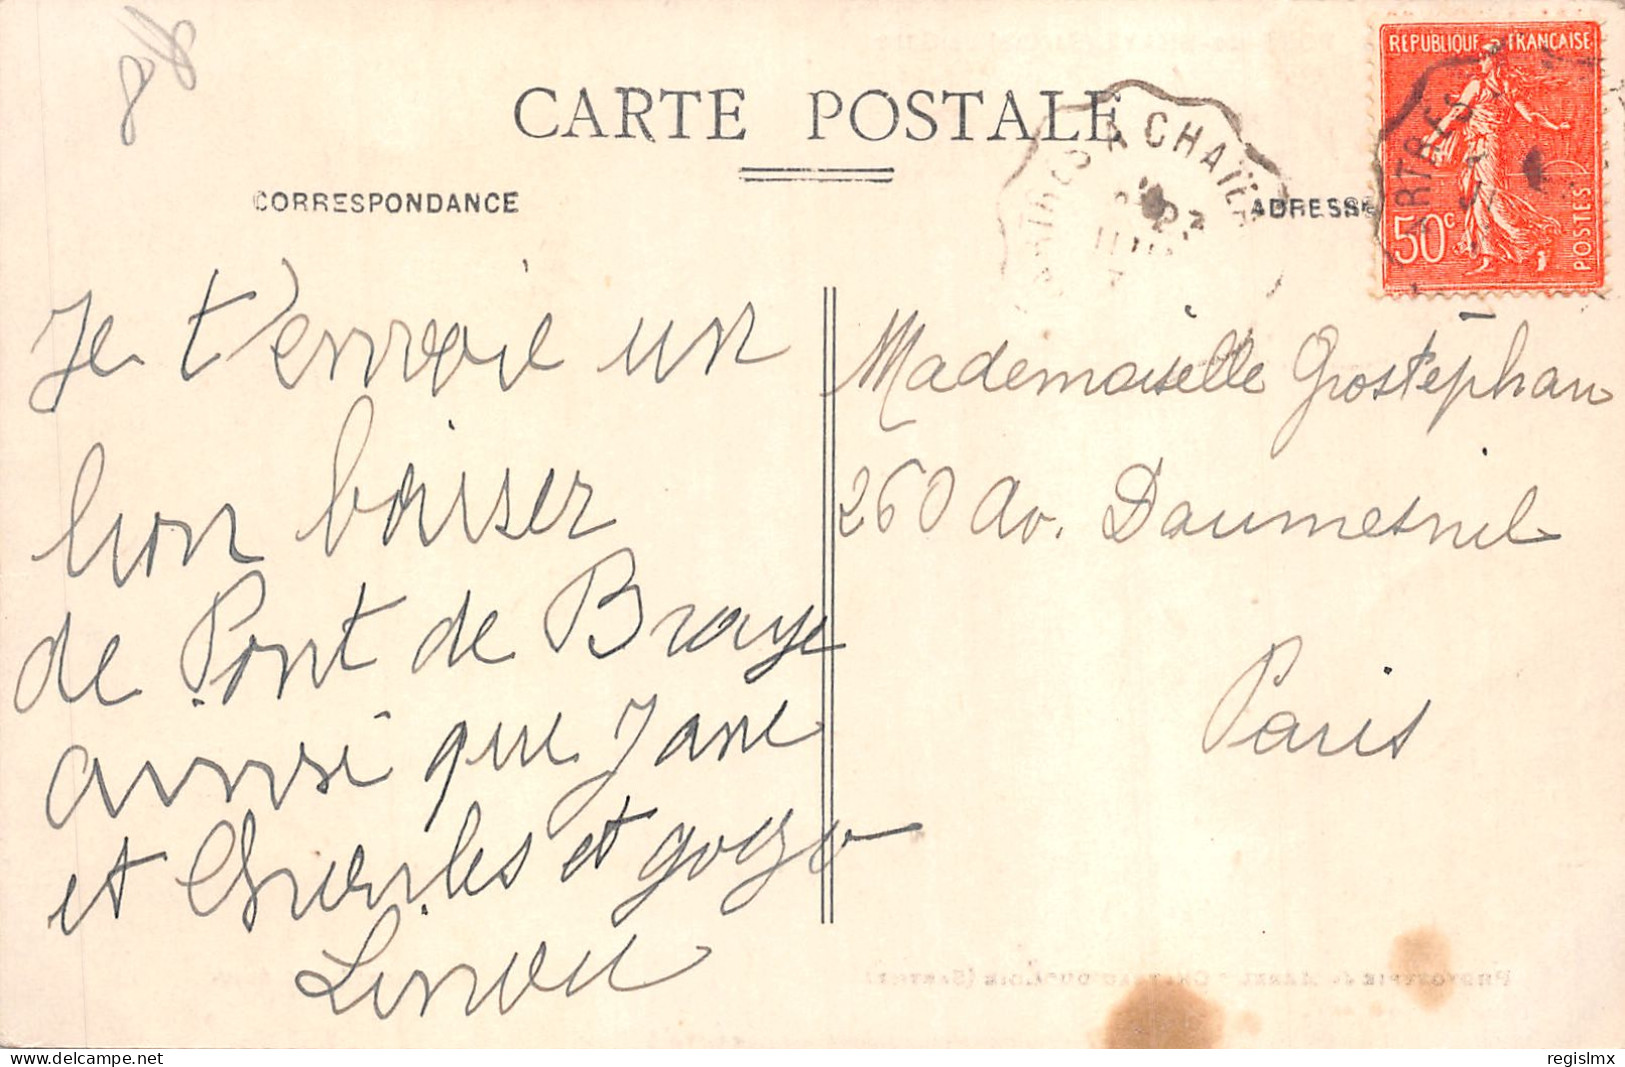 CARTE POSTALE
CORRESPONDANCE
ADRESSE
REPUBLIQUE FRANÇAISE
50c
POSTES
Je t'envoie un
bon baiser
de Pont de Braye
ainsi que Jane
et Charles et
Linou
Mademoiselle Grostéphan
260 Av. Daumesnil
Paris
delcampe.net
regislmx